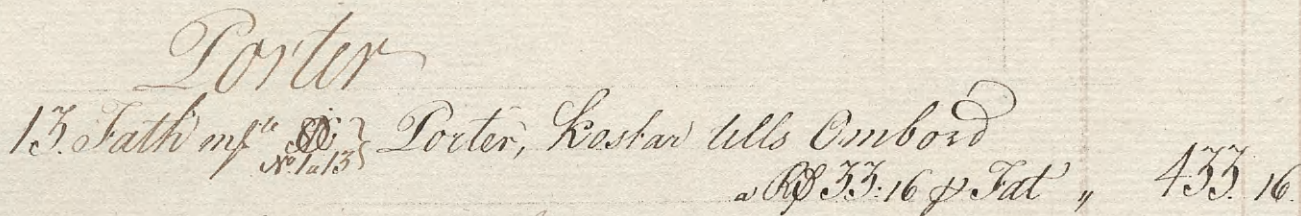 Porter
13. Fath mkte N:o 1 a 13 } Porter, kostar tills Ombord
a Rd 33. 16 p Fat „ 433. 16.